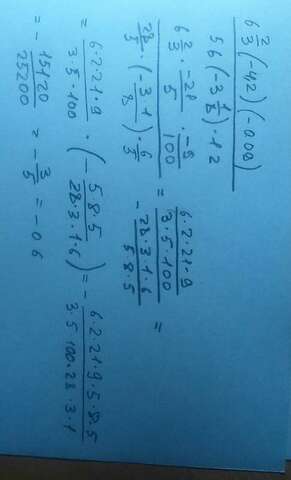 6 2/3 (-4,2)(-0,09) / 5,6(-3 1/8)·1,2
(6 2/3 · -21/5 · -9/100) / (28/5 · (-3·1/8) · 6/3) = (6·2·21·9 / 3·5·100) / (- 28·3·1·6 / 5·8·5) =
= 6·2·21·9 / 3·5·100 · (- 5·8·5 / 28·3·1·6) = - 6·2·21·9·5·8·5 / 3·5·100·28·3·1
= - 15120/25200 = - 3/5 = -0,6